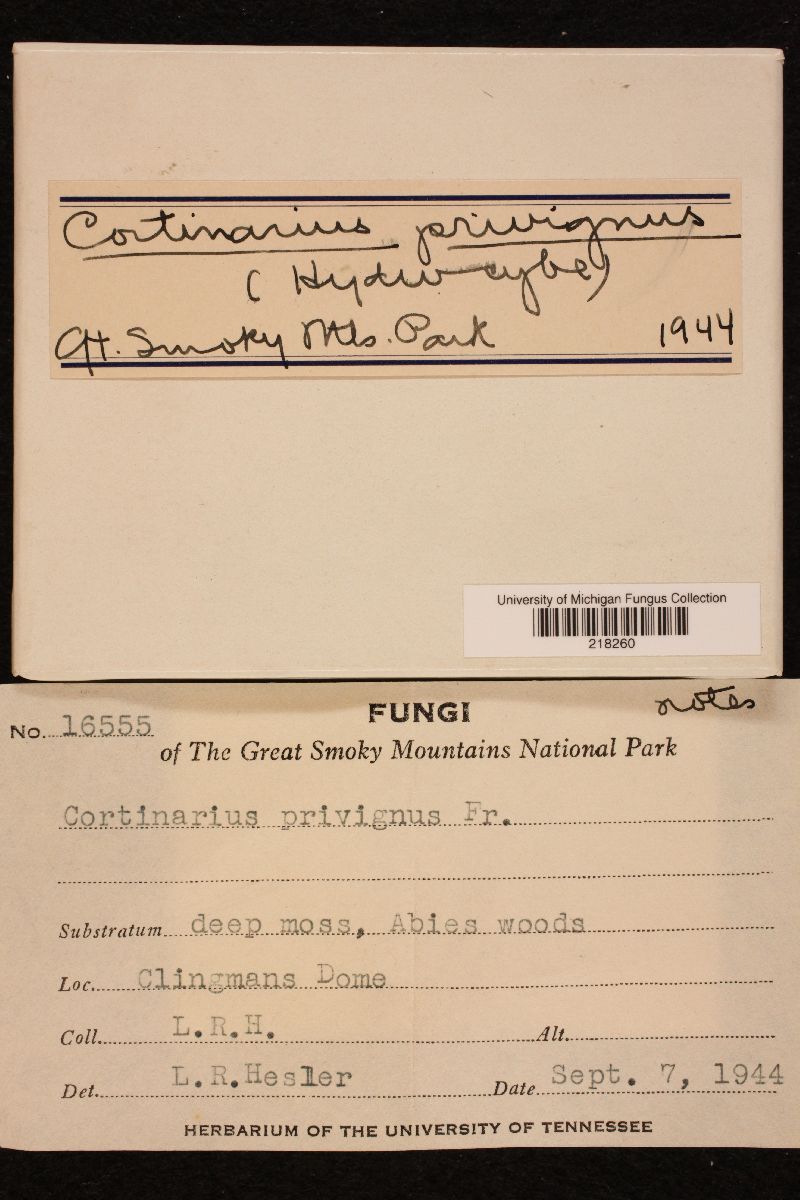 Cortinarius privignus
(Hydrocybe)
Gt. Smoky Mts. Park 1944
University of Michigan Fungus Collection
218260
notes
No. 16555 FUNGI
of The Great Smoky Mountains National Park
Cortinarius privignus Fr.
Substratum deep moss, Abies woods
Loc. Clingmans Dome
Coll. L.R.H. Alt.
Det. L.R.Hesler Date Sept. 7, 1944
HERBARIUM OF THE UNIVERSITY OF TENNESSEE